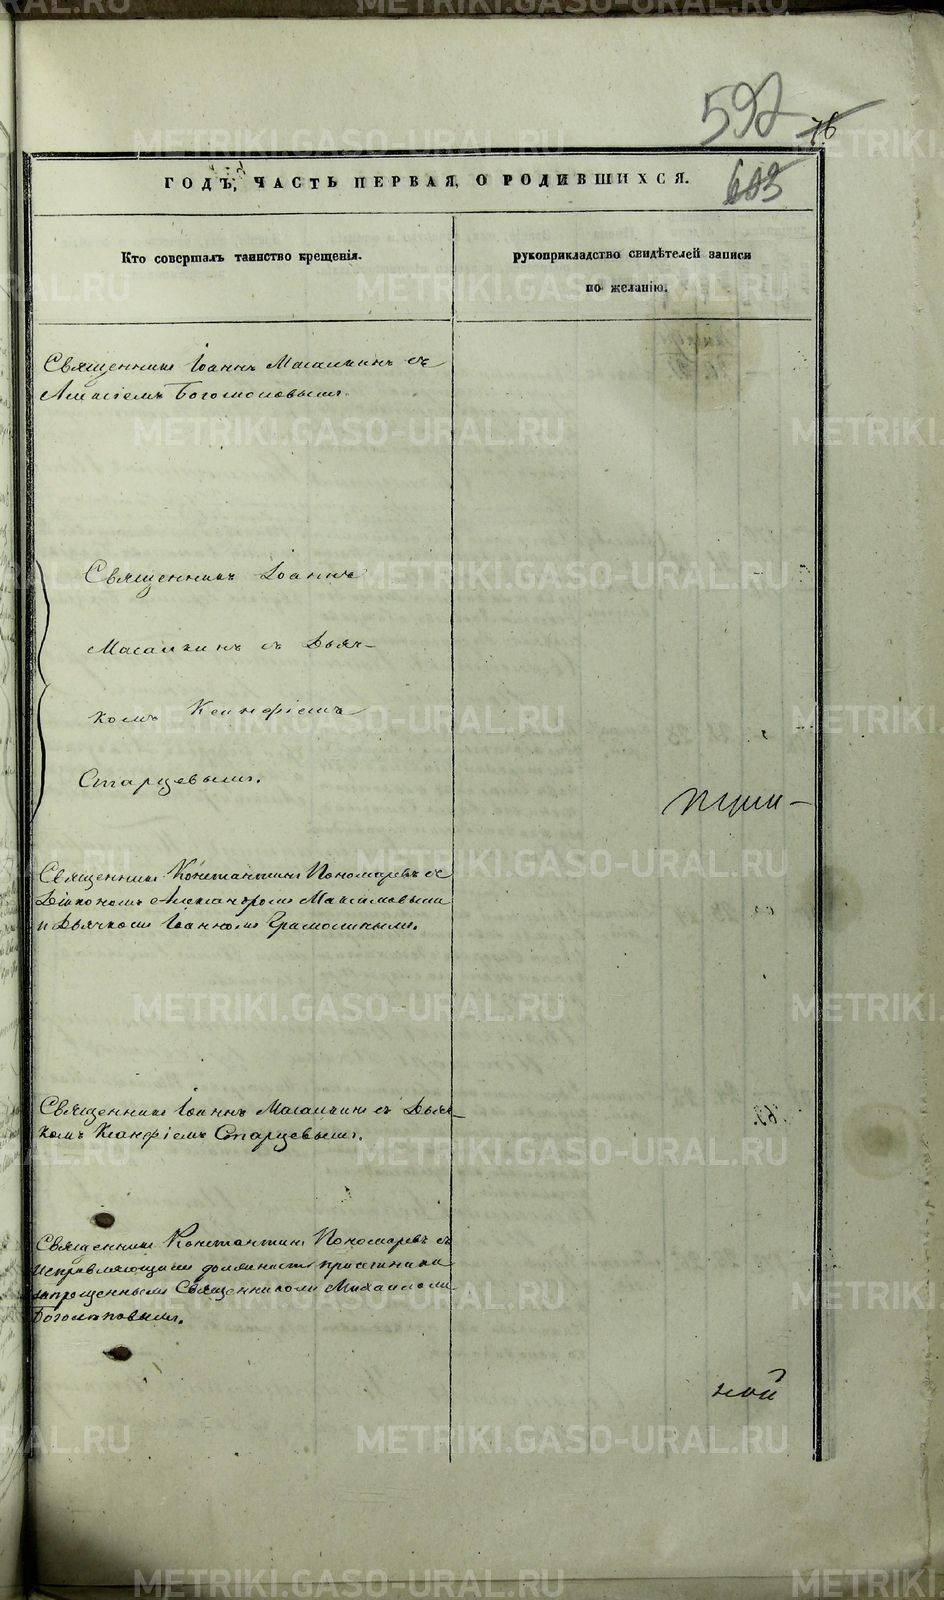 592
76
603
ГОДЪ, ЧАСТЬ ПЕРВАЯ, О РОДИВШИХСЯ.
Кто совершалъ таинство крещенія.
рукоприкладство свидѣтелей записи
по желанію.
Священникъ Іоаннъ Масалкинъ съ
Алексіемъ Богомоловымъ.
Священникъ Іоаннъ
Масалкинъ съ Дьяч-
комъ Ксанфіемъ
Старцевымъ.
Священникъ Константинъ Пономаревъ съ
Діакономъ Александромъ Максимовымъ
и Дьячкомъ Іоанномъ Грамолинымъ.
Священникъ Іоаннъ Масалкинъ съ Дьяч-
комъ Ксанфіемъ Старцевымъ.
Священникъ Константинъ Пономаревъ съ
исправляющимъ должность причетника
запрещеннымъ Священникомъ Михаиломъ
Боголѣповымъ.
ной
METRIKI.GASO-URAL.RU